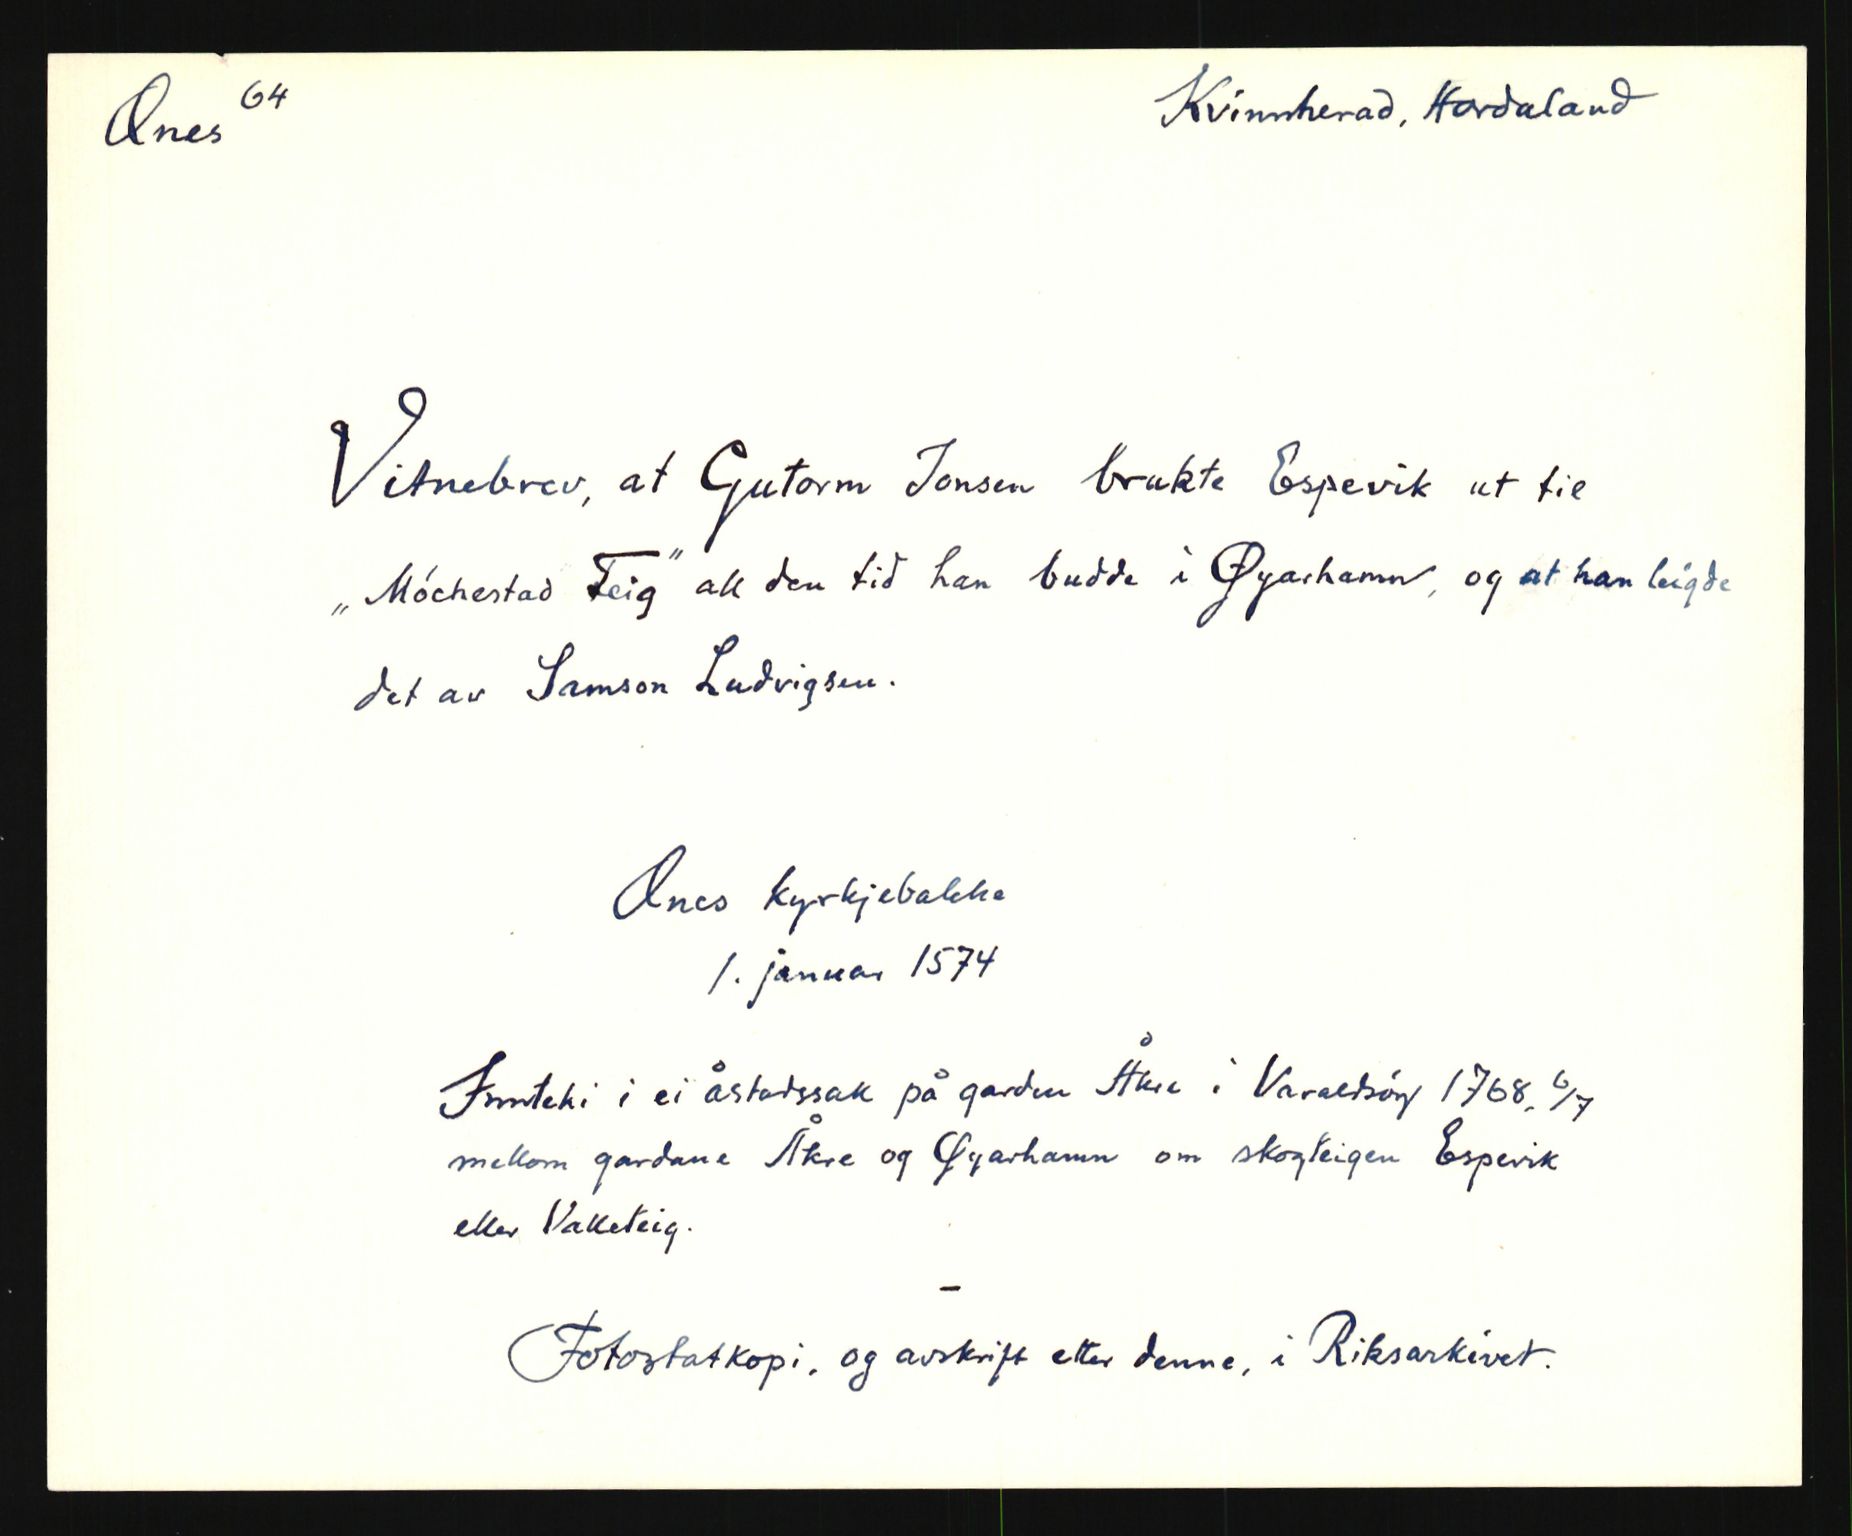 Ønes 64
Kvinnherad, Hordaland
Vitnebrev, at Gutorm Jonsen brukte Espevik ut til
„Móchestad Teig" all den tid han budde i Øyarhamn, og at han leigde
det av Samson Ludvigsen.
Ønes kyrkjebakke
1. januar 1574
Innteki i ei åstadssak på garden Åkre i Varaldsöy 1768, 6/7
mellom gardane Åkre og Øyarhamn om skogteigen Espevik
eller Valleteig.
–
Fotostatkopi, og avskrift etter denne, i Riksarkivet.